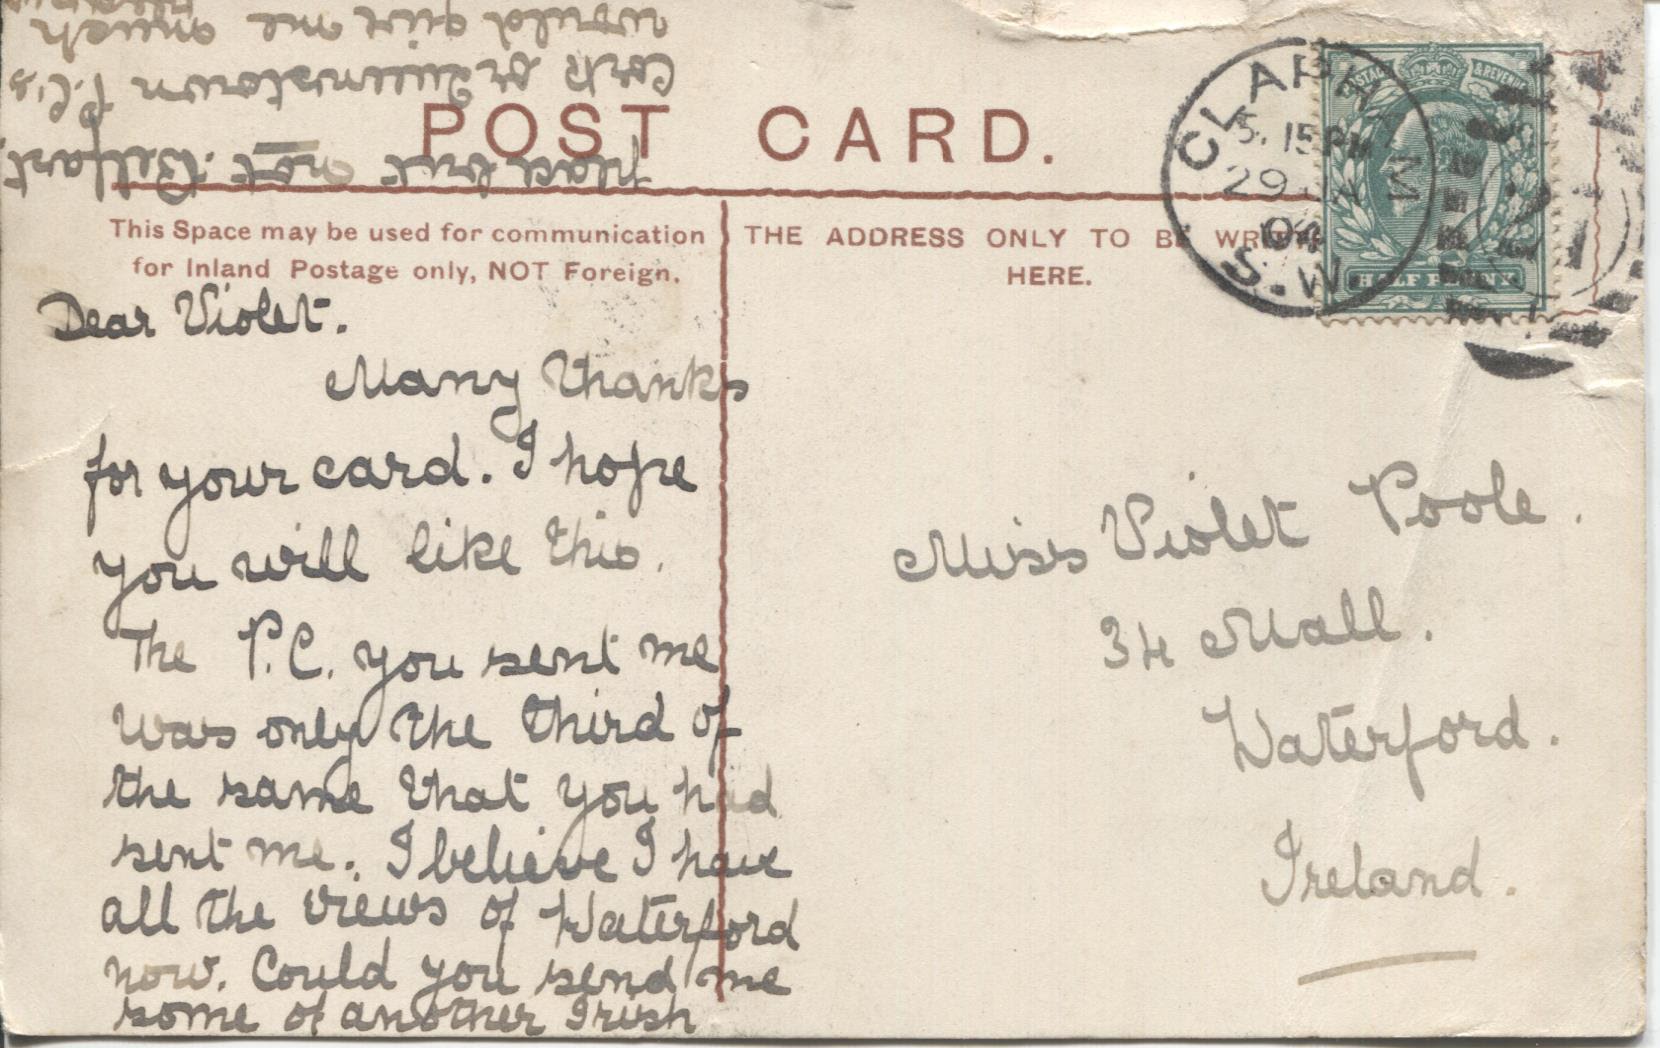 POST CARD.
This Space may be used for communication
for Inland Postage only, NOT Foreign.
THE ADDRESS ONLY TO BE WRITTEN
HERE.
CLAPHAM
S.W.
5.15 PM
29
04
POSTAGE & REVENUE
HALF PENNY
Dear Violet.
Many thanks
for your card. I hope
you will like this.
The P.C. you sent me
was only the third of
the same that you had
sent me. I believe I have
all the views of Waterford
now. Could you send me
some of another Irish
place but not Belfast.
Cork or Queenstown P.C's
would give me much
Miss Violet Poole.
34 Mall.
Waterford.
Ireland.